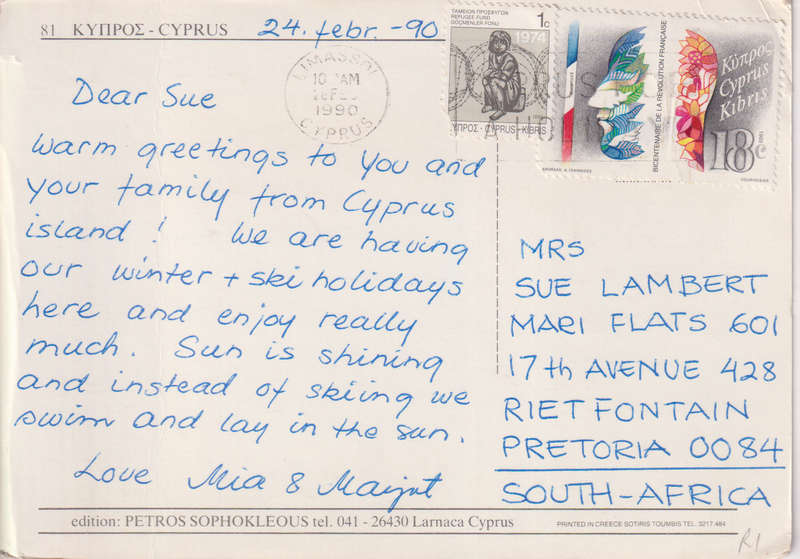 81 ΚΥΠΡΟΣ - CYPRUS 24. febr. -90
ΤΑΜΕΙΟΝ ΠΡΟΣΦΥΓΩΝ
REFUGEE FUND
GÖÇMENLER FONU
1c
1974
ΚΥΠΡΟΣ · CYPRUS · KIBRIS
BICENTENAIRE DE LA REVOLUTION FRANÇAISE
Κύπρος
Cyprus
Kıbrıs
18c
LIMASSOL
10 AM
FE
1990
CYPRUS
Dear Sue
Warm greetings to you and
your family from Cyprus
island! We are having
our winter + ski holidays
here and enjoy really
much. Sun is shining
and instead of skiing we
swim and lay in the sun.
Love Mia &
MRS
SUE LAMBERT
MARI FLATS 601
17th AVENUE 428
RIETFONTAIN
PRETORIA 0084
SOUTH-AFRICA
edition: PETROS SOPHOKLEOUS tel. 041 - 26430 Larnaca Cyprus
PRINTED IN GREECE SOTIRIS TOUMBIS TEL. 3217.464
R1